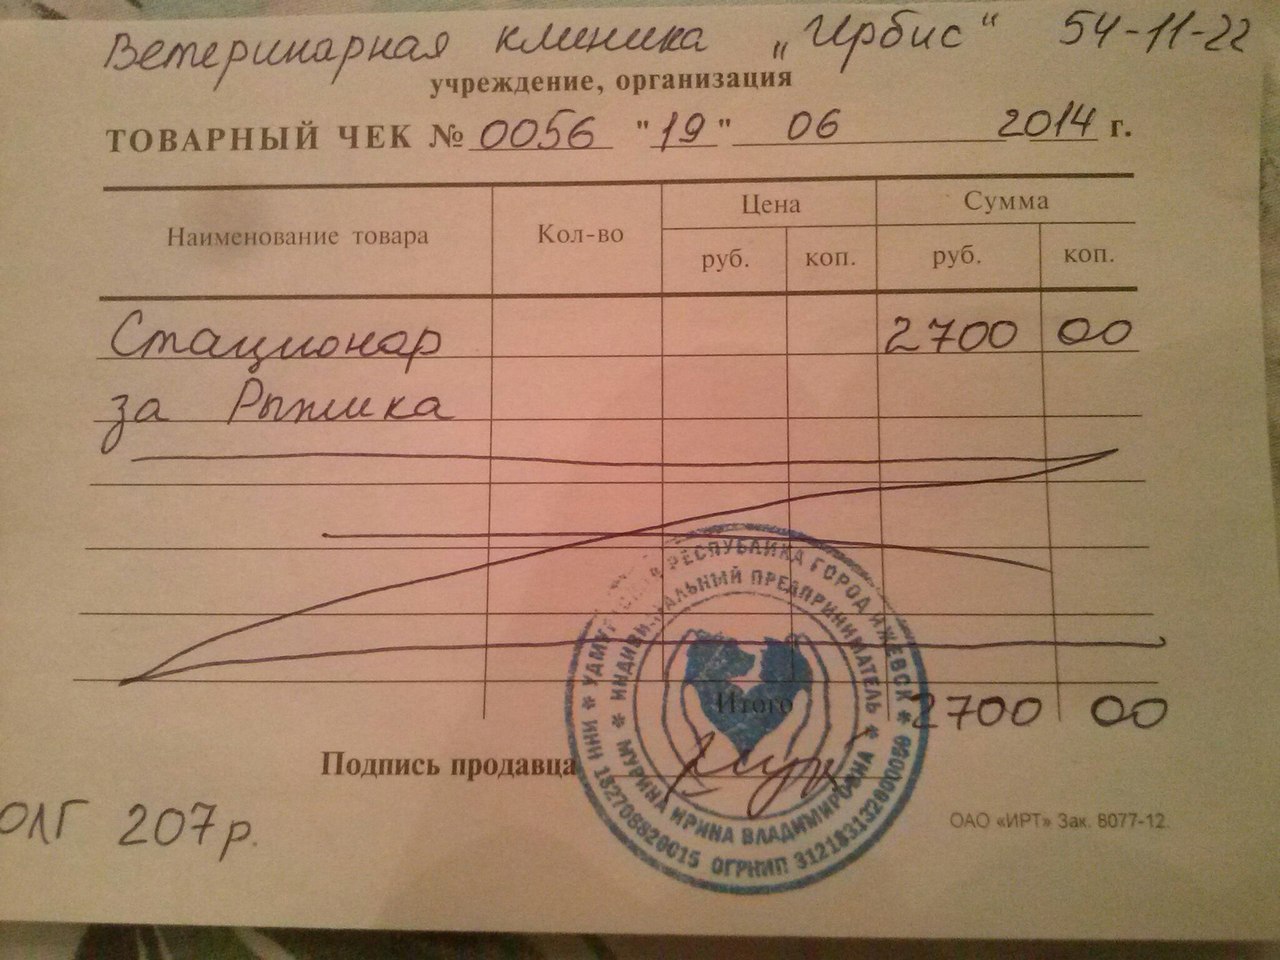 Ветеринарная клиника „Ирбис“ 54-11-22
учреждение, организация
ТОВАРНЫЙ ЧЕК № 0056 "19" 06 2014 г.
Наименование товара Кол-во Цена Сумма
руб. коп. руб. коп.
Стационар 2700 00
за Рыжика
Итого 2700 00
Подпись продавца
ОЛГ 207 р.
ОАО «ИРТ» Зак. 8077-12.
УДМУРТСКАЯ РЕСПУБЛИКА ГОРОД ИЖЕВСК
ИНДИВИДУАЛЬНЫЙ ПРЕДПРИНИМАТЕЛЬ
МУРИНА ИРИНА ВЛАДИМИРОВНА
ИНН ОГРНИП